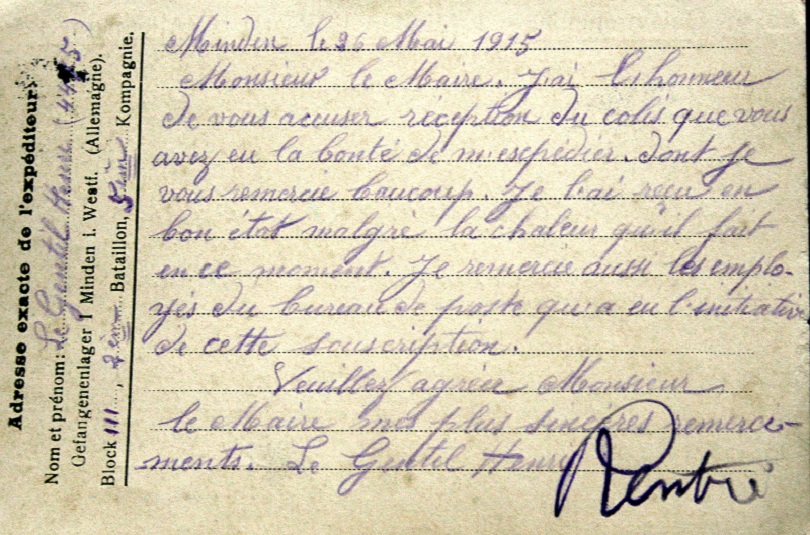 Adresse exacte de l'expéditeur:
Nom et prénom: Le Gentil Henri
Gefangenenlager I Minden i. Westf. (Allemagne).
Block III, Bataillon, Kompagnie.
Minden le 26 Mai 1915
Monsieur le Maire. J'ai l'honneur
de vous accuser réception du colis que vous
avez eu la bonté de m'expédier. dont je
vous remercie baucoup. Je l'ai reçu en
bon état malgré la chaleur qu'il fait
en ce moment. Je remercie aussi les emplo-
yés du bureau de poste qu'a eu l'initiative
de cette souscription.
Veuillez agréer Monsieur
le Maire mes plus sincères remerce-
ments. Le Gentil Henri